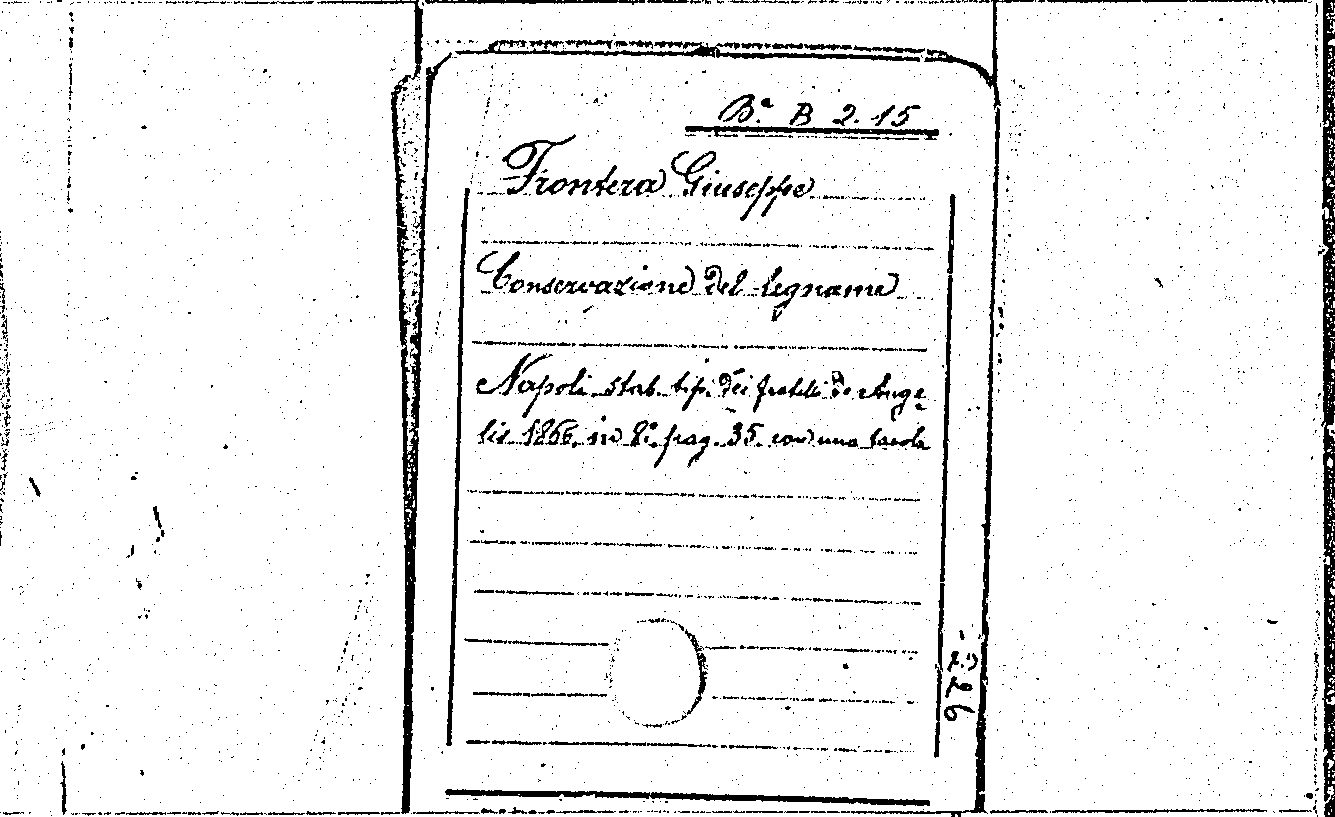 Bª. B 2. 15
Frontera Giuseppe
Conservazione del legname
Napoli stab. tip. dei fratelli de Ange-
lis 1866. in 8º. pag. 35. con una tavola